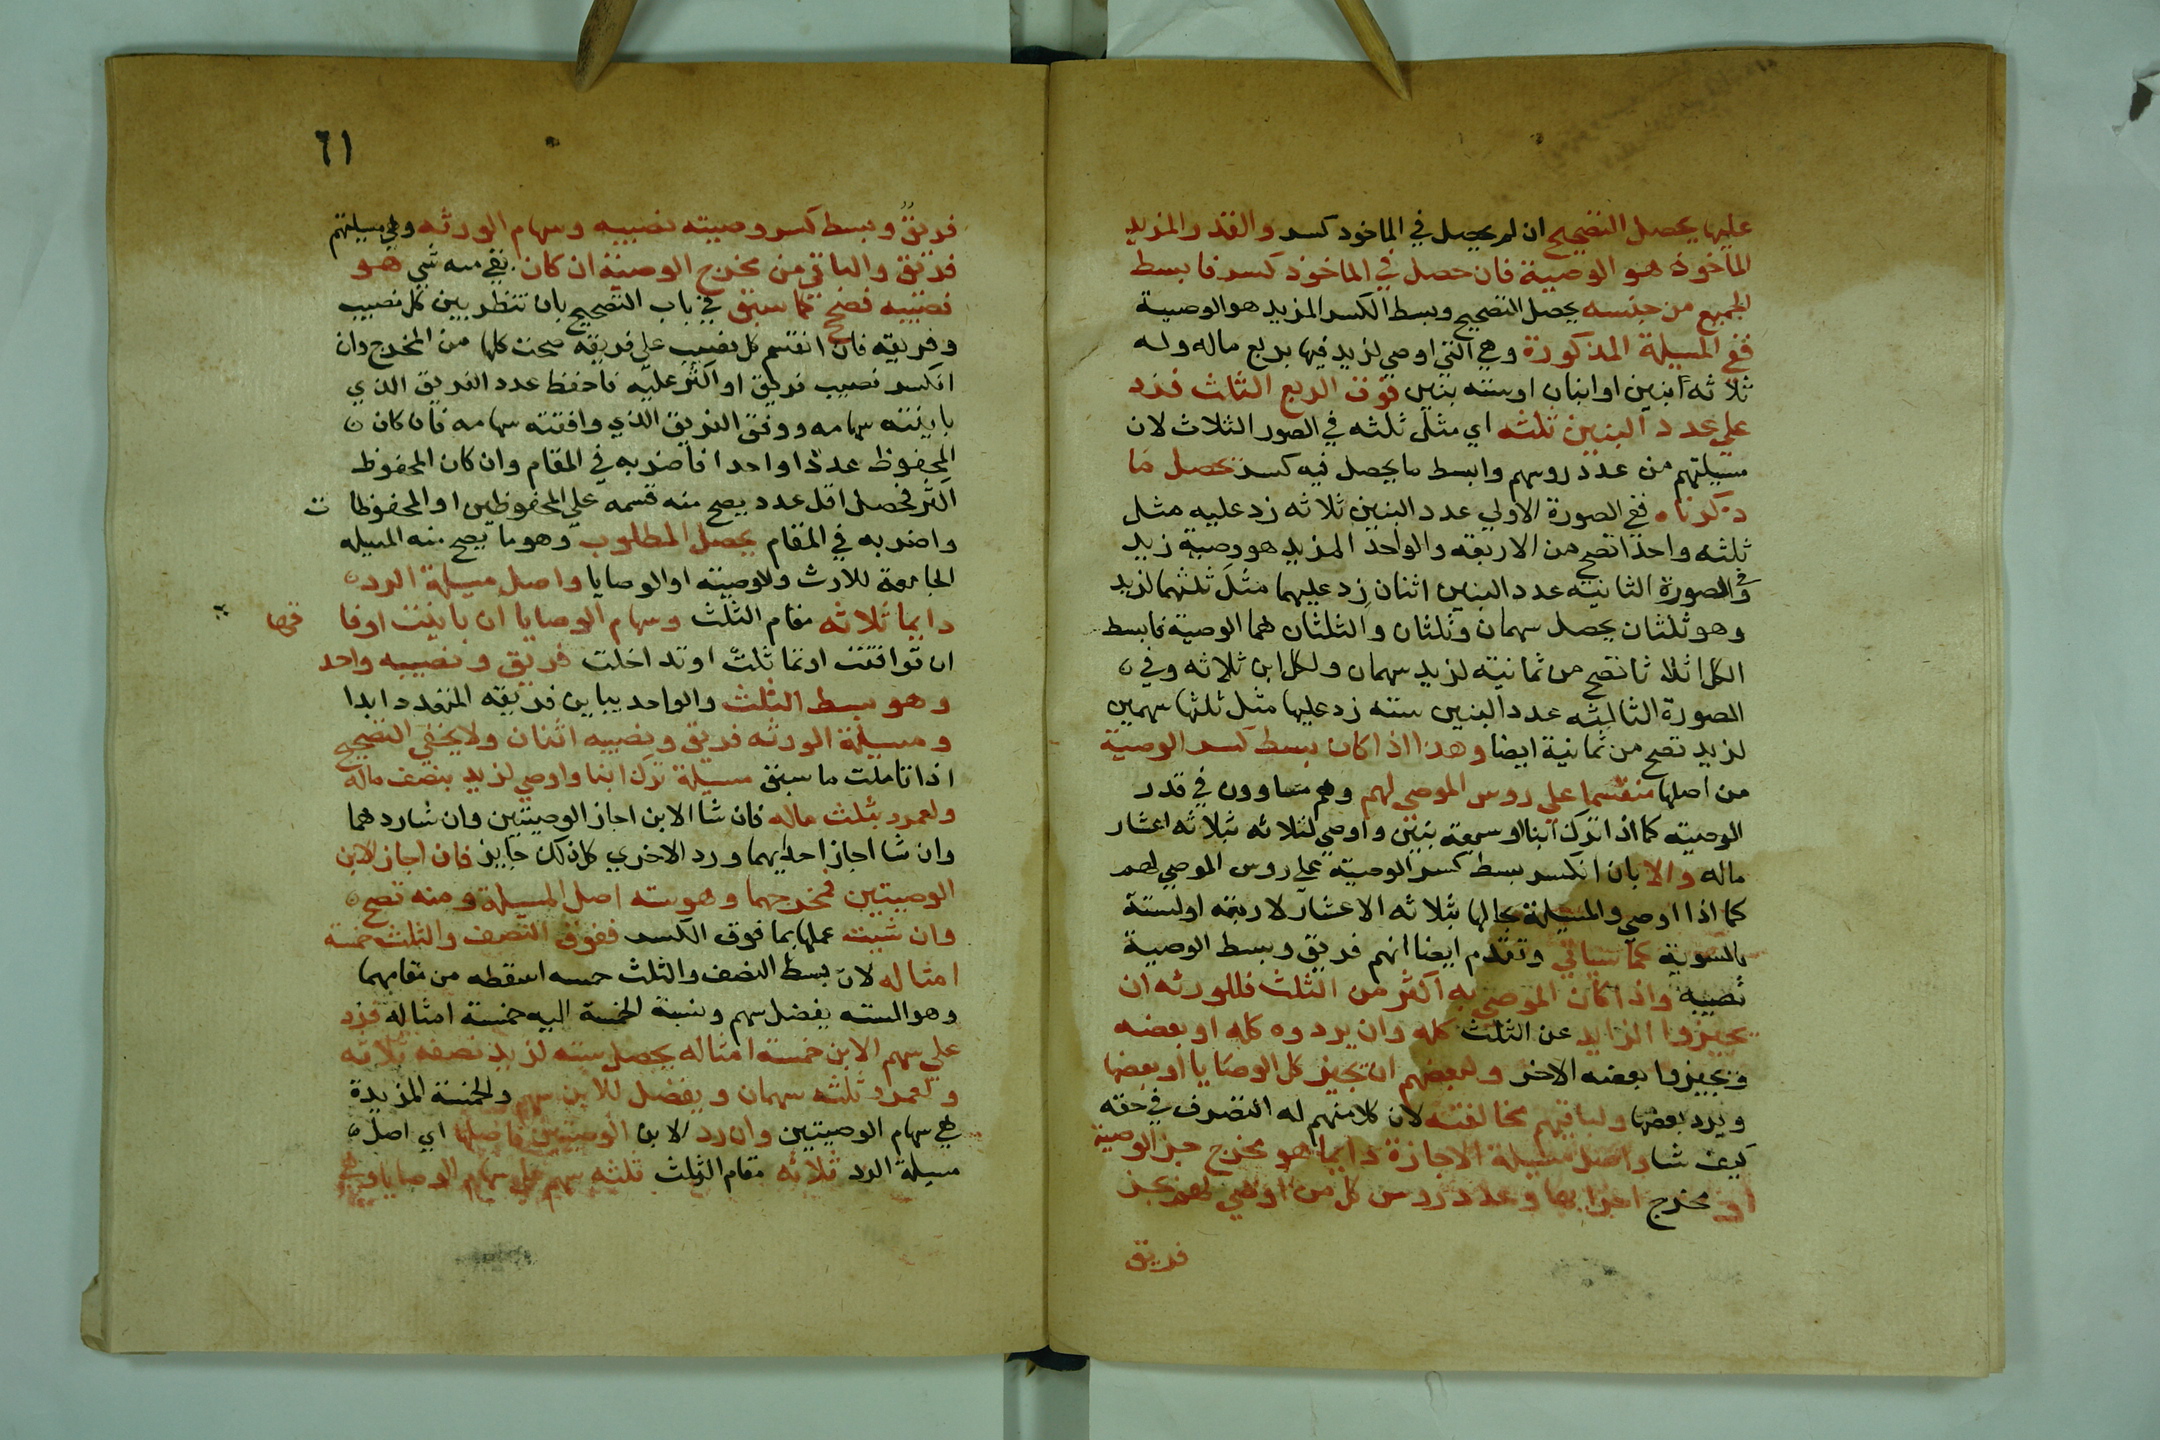 عليها يحصل التصحيح ان لم يحصل في الماخود كسر والقدر المزيد
الماخوذ هو الوصية فان حصل في الماخوذ كسر فابسط
الجميع من جنسه يحصل التصحيح وبسط الكسر المزيد هو الوصية
ففي المسيلة المذكورة وهي التي اوصي لزيد فيها بربع ماله وله
ثلاثة ابنين او ابنان او ستة بنين فوق الربع الثلث فزد
علي عدد البنين ثلثه اي مثل ثلثه في الصور الثلاث لان
مسيلتهم من عدد روسهم وابسط ما يحصل فيه كسر تحصل ما
ذكرناه ففي الصورة الاولي عدد البنين ثلاثه زد عليه مثل
ثلثه واحدا تصح من الاربعه والواحد المزيد هو وصية زيد
وفي الصورة الثانيه عدد البنين اثنان زد عليهما مثل ثلثهما لزيد
وهو ثلثان يحصل سهمان وثلثان والثلثان هما الوصية فابسط
الكل اثلاثا تصح من ثمانيه لزيد سهمان ولكل ابن ثلاثه وفي
الصورة الثالثه عدد البنين سته زد عليها مثل ثلثها سهمين
لزيد تصح من ثمانية ايضا وهذا اذا كان بسط كسر الوصية
من اصلها منقسما علي روس الموصي لهم وهم متساوون في قدر
الوصيه كما اذا ترك ابنا او سبعة بنين واوصي لثلاثه بثلاثه اعشار
ماله والا بان انكسر بسط كسر الوصية علي روس الموصي لهم
كما اذا اوصي والمسيلة بحالها بثلاثه الاعشار لاربعه او لستة
بالسوية كما سياتي وتقدم ايضا انهم فريق وبسط الوصية
نصيبه واذا كان الموصي به اكثر من الثلث فللورثه ان
يجيزوا الزايد عن الثلث كله وان يردوه كله او بعضه
ويجيزوا بعضه الاخر ولبعضهم ان يجيز كل الوصايا او بعضها
ويرد بعضها ولباقيهم مخالفته لان كلا منهم له التصرف في حقه
كيف شا واصل مسيلة الاجازة دايما هو مخرج جز الوصية
او مخرج اجزايها وعدد روس كل من اوصي لهم بجز
فريق
٦١
فريق وبسط كسر وصيته نصيبه وسهام الورثه وهي مسيلتهم
فريق والباقي من مخرج الوصية ان كان بقي منه شي هو
نصيبه فصحح كما سبق في باب التصحيح بان تنظر بين كل نصيب
وفريقه فان انقسم كل نصيب علي فريقه صحت كلها من المخرج وان
انكسر نصيب فريق او اكثر عليه فاحفظ عدد الفريق الذي
باينته سهامه ووفق الفريق الذي وافقته سهامه فان كان
المحفوظ عددا واحدا فاضربه في المقام وان كان المحفوظ
اكثر فحصل اقل عدد يصح منه قسمه علي المحفوظين او المحفوظات
واضربه في المقام يحصل المطلوب وهو ما يصح منه المسيله
الجامعة للارث وللوصيته او الوصايا واصل مسيلة الرد
دايما ثلاثه مقام الثلث وسهام الوصايا ان باينت او فا
ان توافقت او تماثلت او تداخلت فريق ونصيبه واحد
وهو بسط الثلث والواحد يباين فريقه المتعدد ابدا
ومسيلة الورثه فريق ونصيبه اثنان ولا يخفي التصحيح
اذا تاملت ما سبق مسيلة ترك ابنا واوصي لزيد بنصف ماله
ولعمرو بثلث ماله فان شا الابن اجاز الوصيتين وان شا ردهما
وان شا اجاز احديهما ورد الاخري كل ذلك جايز فان اجاز الابن
الوصيتين فمخرجهما وهو سته اصل المسيلة ومنه تصح
وان شيت عملها بما فوق الكسر ففوق النصف والثلث خمسة
امثاله لان بسط النصف والثلث خمسه اسقطه من مقامهما
وهو السته يفضل سهم ونسبة الخمسة اليه خمسة امثاله فزد
علي سهم الابن خمسة امثاله يحصل سته لزيد نصفه ثلاثه
ولعمرو ثلثه سهمان ويفضل للابن سهم والخمسة المزيدة
هي سهام الوصيتين وان رد الابن الوصيتين فاصلها اي اصل
مسيلة الرد ثلاثه مقام الثلث ثلثه سهم علي سهام الوصايا وهي